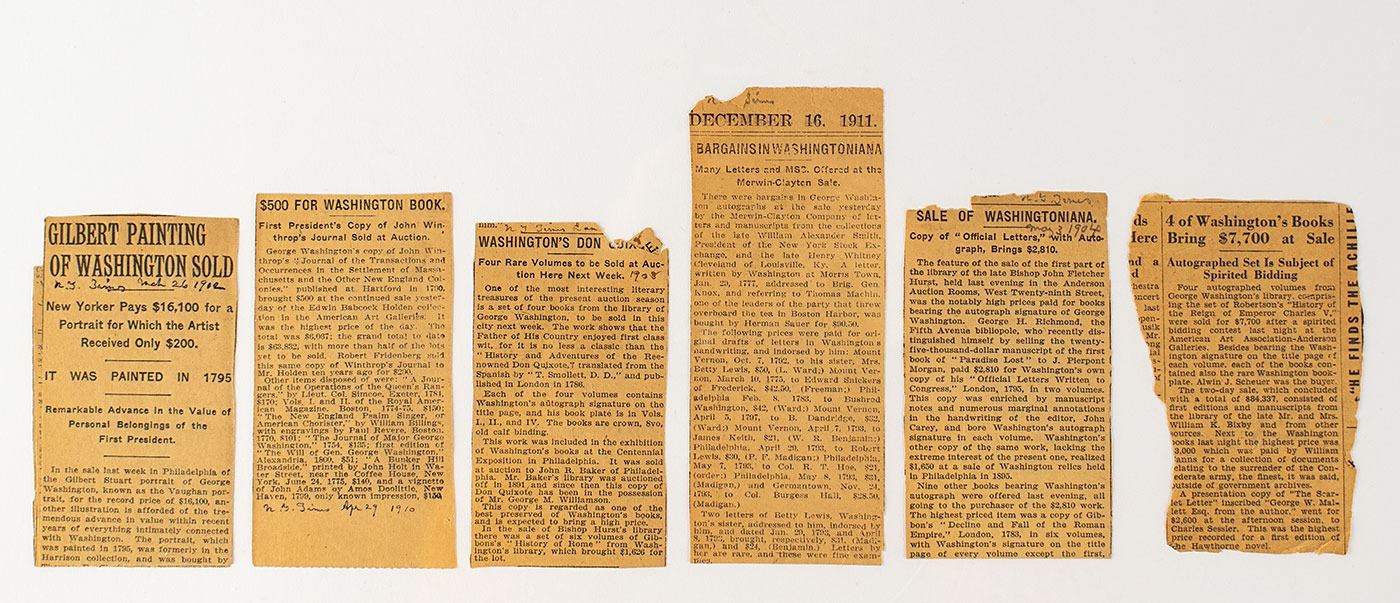 GILBERT PAINTING
OF WASHINGTON SOLD
N.Y. Times Mch 26 1912
New Yorker Pays $16,100 for a
Portrait for Which the Artist
Received Only $200.
IT WAS PAINTED IN 1795
Remarkable Advance in the Value of
Personal Belongings of the
First President.
In the sale last week in Philadelphia of
the Gilbert Stuart portrait of George
Washington, known as the Vaughan por-
trait, for the record price of $16,100, an-
other illustration is afforded of the tre-
mendous advance in value within recent
years of everything intimately connected
with Washington. The portrait, which
was painted in 1795, was formerly in the
Harrison collection, and was bought by
$500 FOR WASHINGTON BOOK.
First President's Copy of John Win-
throp's Journal Sold at Auction.
George Washington's copy of John Win-
throp's "Journal of the Transactions and
Occurrences in the Settlement of Massa-
chusetts and the Other New England Col-
onies," published at Hartford in 1790,
brought $500 at the continued sale yester-
day of the Edwin Babcock Holden collec-
tion in the American Art Galleries.
was the highest price of the day. The
total was $6,087; the grand total to date
is $63,832, with more than half of the lots
yet to be sold. Robert Fridenberg sold
this same copy of Winthrop's Journal to
Mr. Holden ten years ago for $290.
Other items disposed of were: "A Jour-
nal of the Operations of the Queen's Ran-
gers," by Lieut. Col. Simcoe, Exeter, 1781,
$170; Vols. I. and II. of the Royal Amer-
ican Magazine, Boston, 1774-75, $150;
"The New England Psalm Singer, or
American Chorister," by William Billings,
with engravings by Paul Revere, Boston,
1770, $101; "The Journal of Major George
Washington," 1754, $135; first edition of
"The Will of Gen. George Washington,"
Alexandria, 1800, $51; "A Bunker Hill
Broadside," printed by John Holt in Wa-
ter Street, near the Coffee House, New
York, June 24, 1775, $140, and a vignette
of John Adams by Amos Doolittle, New
Haven, 1799, only known impression, $150.
N.Y. Times Apr 29 1910
N Y Times
WASHINGTON'S DON
Four Rare Volumes to be Sold at Auc-
tion Here Next Week. 1908
One of the most interesting literary
treasures of the present auction season
is a set of four books from the library of
George Washington, to be sold in this
city next week. The work shows that the
Father of His Country enjoyed first class
wit, for it is no less a classic than the
"History and Adventures of the Ree-
nowned Don Quixote," translated from the
Spanish by "T. Smollett, D. D.," and pub-
lished in London in 1786.
Each of the four volumes contains
Washington's autograph signature on the
title page, and his book plate is in Vols.
I., II., and IV. The books are crown, 8vo,
old calf binding.
This work was included in the exhibition
of Washington's books at the Centennial
Exposition in Philadelphia. It was sold
at auction to John R. Baker of Philadel-
phia. Mr. Baker's library was auctioned
off in 1891, and since then this copy of
Don Quixote has been in the possession
of Mr. George M. Williamson.
This copy is regarded as one of the
best preserved of Washington's books,
and is expected to bring a high price.
In the sale of Bishop Hurst's library
there was a set of six volumes of Gib-
bons's "History of Rome" from Wash-
ington's library, which brought $1,626 for
the lot.
Times
DECEMBER 16, 1911.
BARGAINS IN WASHINGTONIANA
Many Letters and MSS. Offered at the
Merwin-Clayton Sale.
There were bargains in George Washin-
ton autographs at the sale yesterday
by the Merwin-Clayton Company of let-
ters and manuscripts from the collections
of the late William Alexander Smith,
President of the New York Stock Ex-
change, and the late Henry Whitney
Cleveland of Louisville, Ky. A letter,
written by Washington at Morris Town,
Jan. 20, 1777, addressed to Brig. Gen.
Knox, and referring to Thomas Machin,
one of the leaders of the party that threw
overboard the tea in Boston Harbor, was
bought by Herman Sauer for $90.50.
The following prices were paid for ori-
ginal drafts of letters in Washington's
handwriting, and indorsed by him: Mount
Vernon, Oct. 7, 1792, to his sister, Mrs.
Betty Lewis, $50, (L. Ward;) Mount Ver-
non, March 10, 1775, to Edward Snickers
of Frederick, $42.50, (Freeman;) Phi-
delphia Feb. 8, 1783, to Bushrod
Washington, $42, (Ward;) Mount Vernon,
April 5, 1797, to B. Dandridge, $32,
(Ward;) Mount Vernon, April 7, 1793, to
James Keith, $21, (W. R. Benjamin;)
Philadelphia, April 29, 1793, to Robert
Lewis, $30, (P. F. Madigan;) Philadelphia,
May 7, 1793, to Col. R. T. Hoe, $21,
(order;) Philadelphia, May 8, 1793, $31,
(Madigan,) and Germantown, Nov. 24,
1793, to Col. Burgess Ball, $28.50,
(Madigan.)
Two letters of Betty Lewis, Washing-
ton's sister, addressed to him, indorsed by
and dated Jan. 29, 1793, and April
8, 1793, brought, respectively, $31, (Madi-
gan,) and $24, (Benjamin.) Letters by
are rare, and these were fine exam-
ples.
N.Y. Times
SALE OF WASHINGTONIANA.
1904
Copy of "Official Letters," with Auto-
graph, Brings $2,810.
The feature of the sale of the first part of
the library of the late Bishop John Fletcher
Hurst, held last evening in the Anderson
Auction Rooms, West Twenty-ninth Street,
was the notably high prices paid for books
bearing the autograph signature of George
Washington. George H. Richmond, the
Fifth Avenue bibliopole, who recently dis-
tinguished himself by selling the twenty-
five-thousand-dollar manuscript of the first
book of "Paradise Lost" to J. Pierpont
Morgan, paid $2,810 for Washington's own
copy of his "Official Letters Written to
Congress," London, 1795, in two volumes.
This copy was enriched by manuscript
notes and numerous marginal annotations
in the handwriting of the editor, John
Carey, and bore Washington's autograph
signature in each volume. Washington's
other copy of the same work, lacking the
extreme interest of the present one, realized
$1,650 at a sale of Washington relics held
in Philadelphia in 1895.
Nine other books bearing Washington's
autograph were offered last evening, all
going to the purchaser of the $2,810 work.
The highest priced item was a copy of Gib-
bon's "Decline and Fall of the Roman
Empire," London, 1783, in six volumes,
with Washington's signature on the title
page of every volume except the first,
4 of Washington's Books
Bring $7,700 at Sale
Autographed Set Is Subject of
Spirited Bidding
Four autographed volumes from
George Washington's library, compris-
ing the set of Robertson's "History of
the Reign of Emperor Charles V,"
were sold for $7,700 after a spirited
bidding contest last night at the
American Art Association-Anderson
Galleries. Besides bearing the Wash-
ington signature on the title page of
each volume, each of the books con-
tained also the rare Washington book-
plate. Alwin J. Scheuer was the buyer.
The two-day sale, which concluded
with a total of $84,337, consisted of
first editions and manuscripts from
the library of the late Mr. and Mrs.
William K. Bixby and from other
sources. Next to the Washington
books last night the highest price was
3,000 which was paid by William
anna for a collection of documents
elating to the surrender of the Con-
ederate army, the finest, it was said,
outside of government archives.
A presentation copy of "The Scar-
let Letter" inscribed "George W. Mal-
lett Esq. from the author," went for
$2,600 at the afternoon session, to
Charles Sessler. This was the highest
price recorded for a first edition of
he Hawthorne novel.
"HE FINDS THE ACHILLE